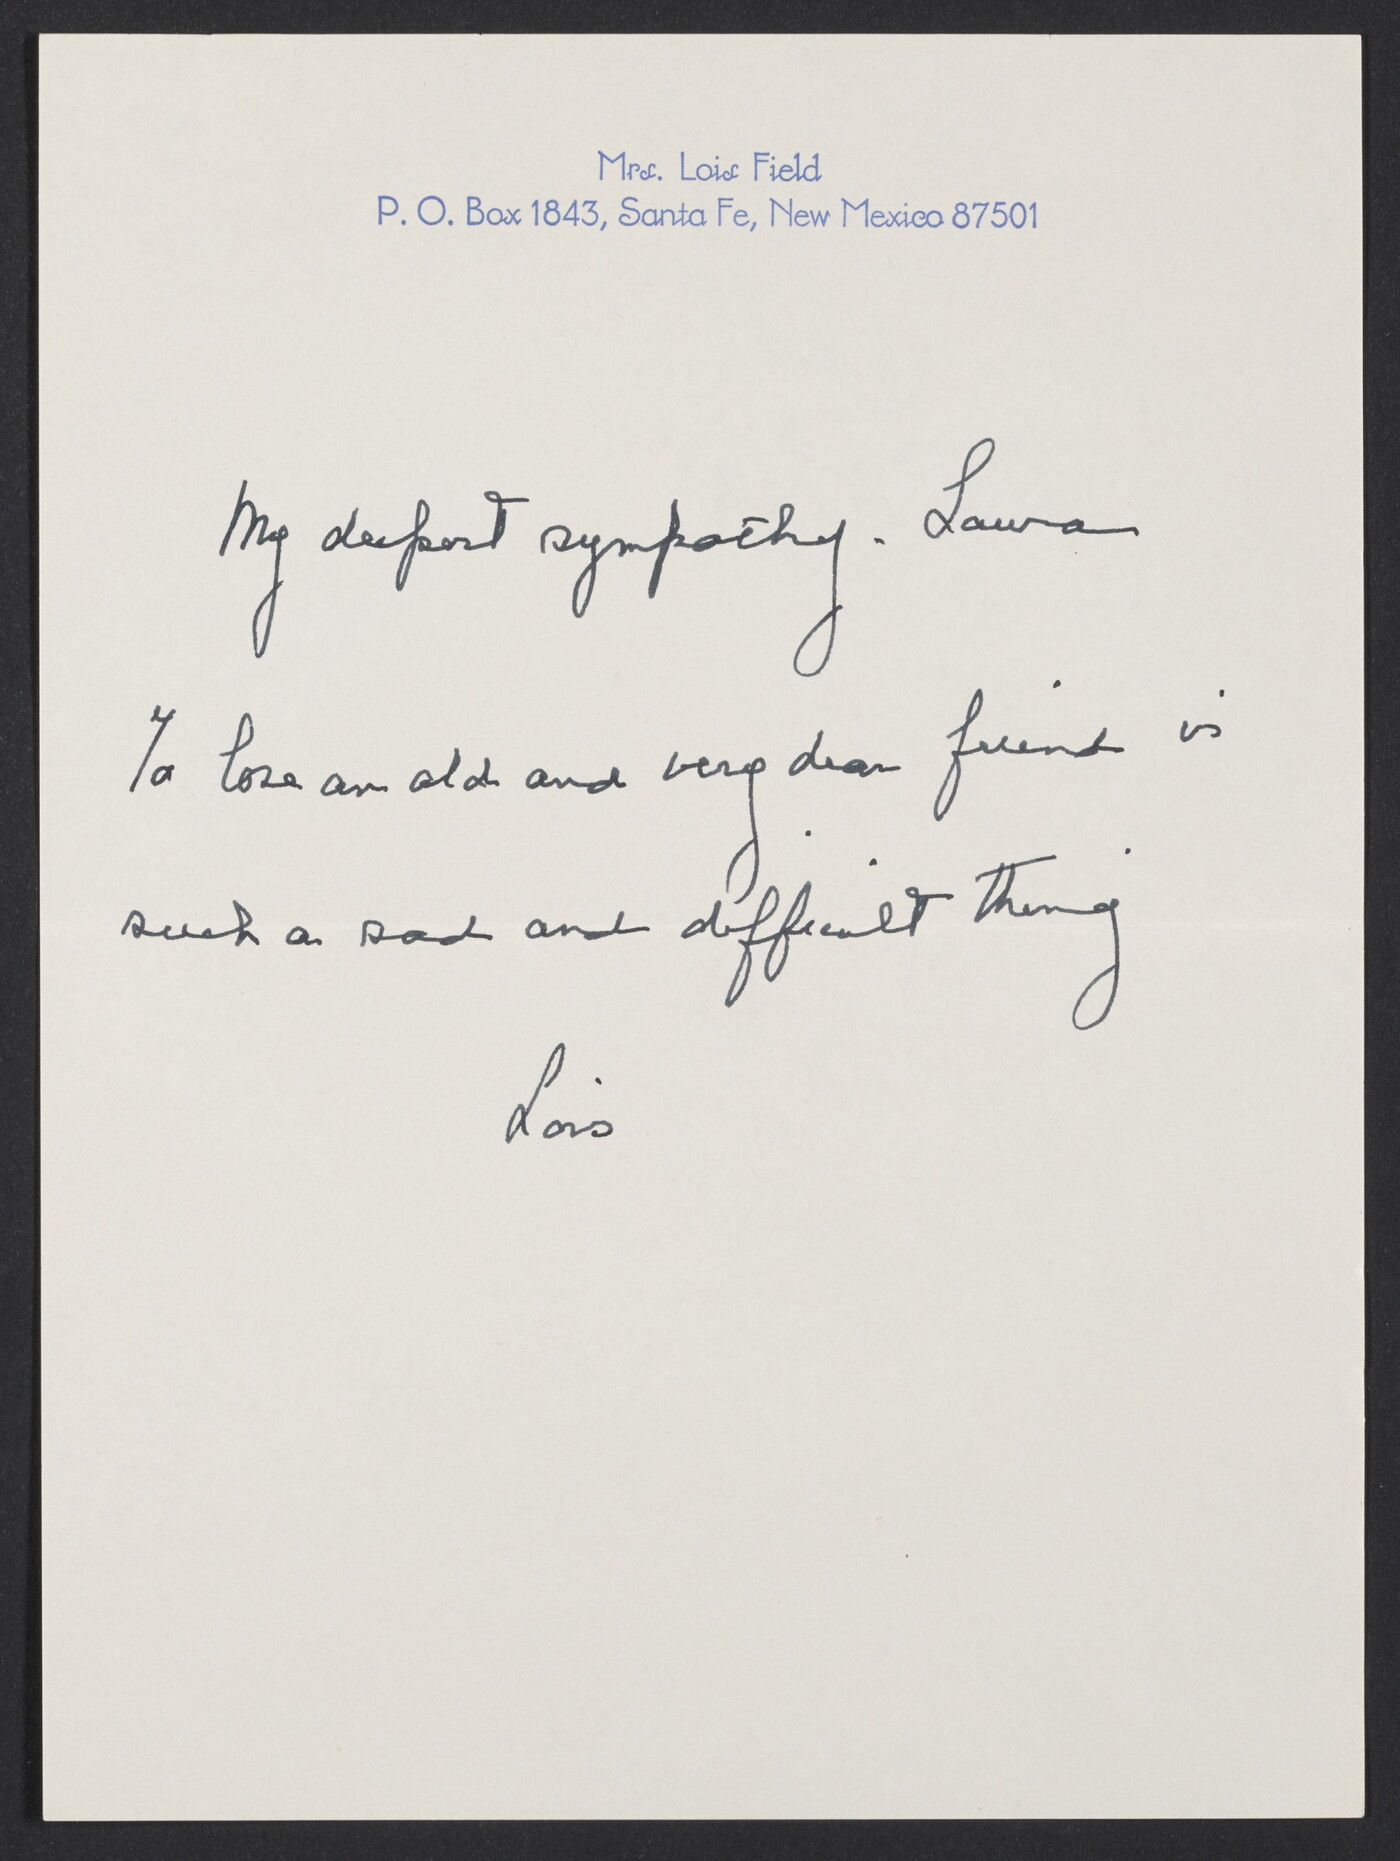 Mrs. Lois Field
P. O. Box 1843, Santa Fe, New Mexico 87501
My deepest sympathy. Laura
To lose an old and very dear friend is
such a sad and difficult thing
Lois